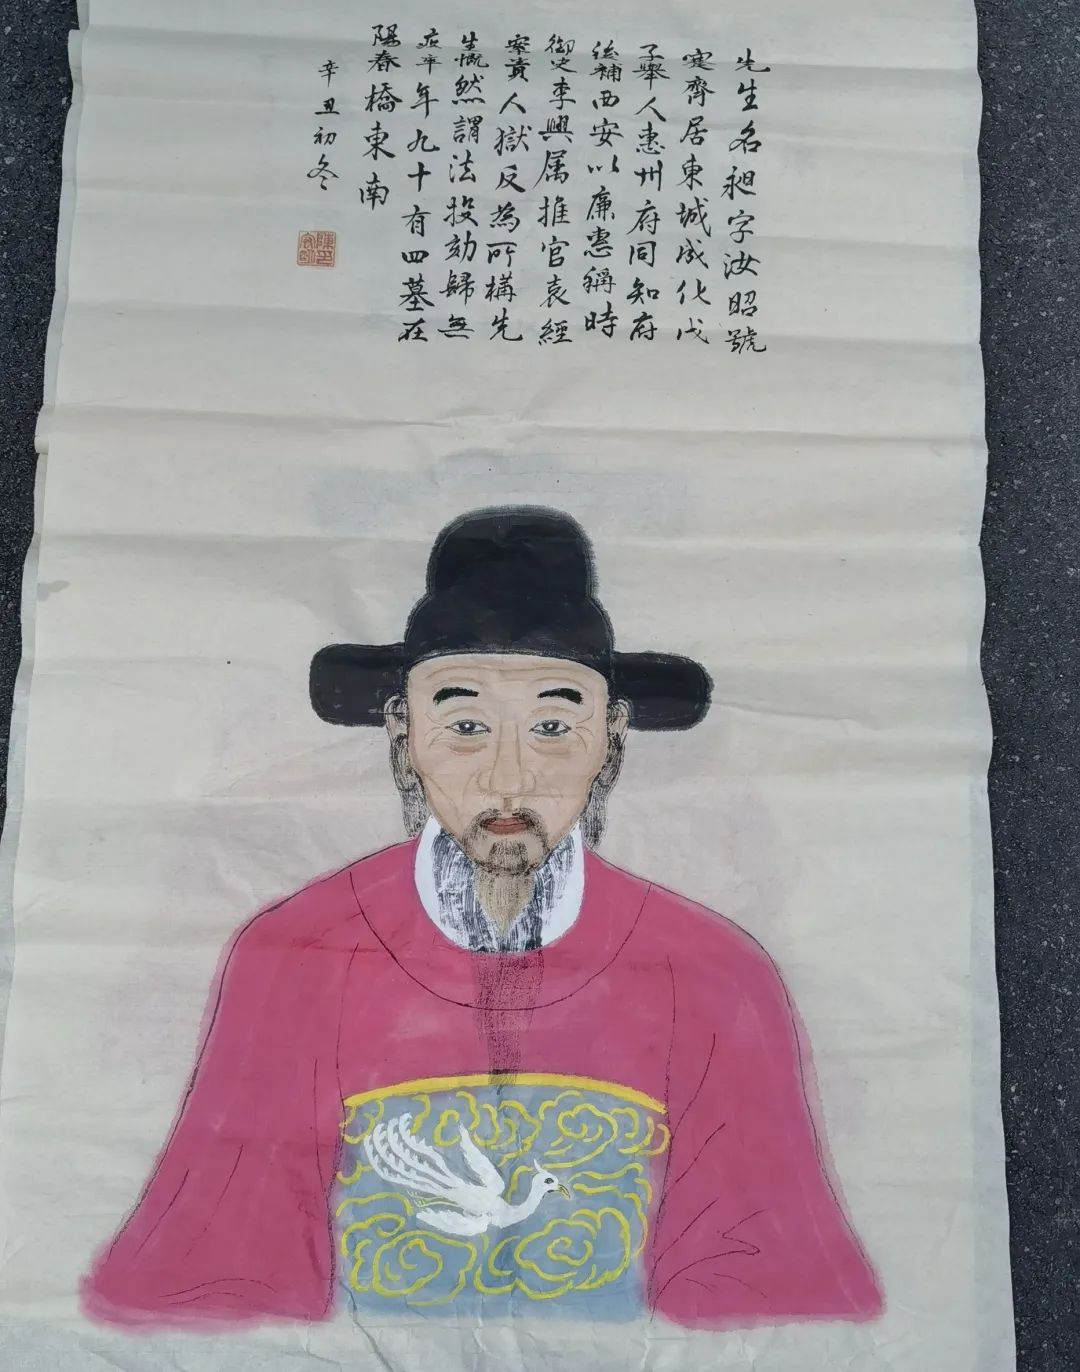 先生名昶字汝昭號
寔齊居東城成化戊
子舉人惠州府同知府
後補西安以廉惠稱時
御史李興属推官袁經
寀責人獄反為所構先
生慨然謂法投劾歸無
疾卒年九十有四墓在
陽春橋東南
辛丑初冬